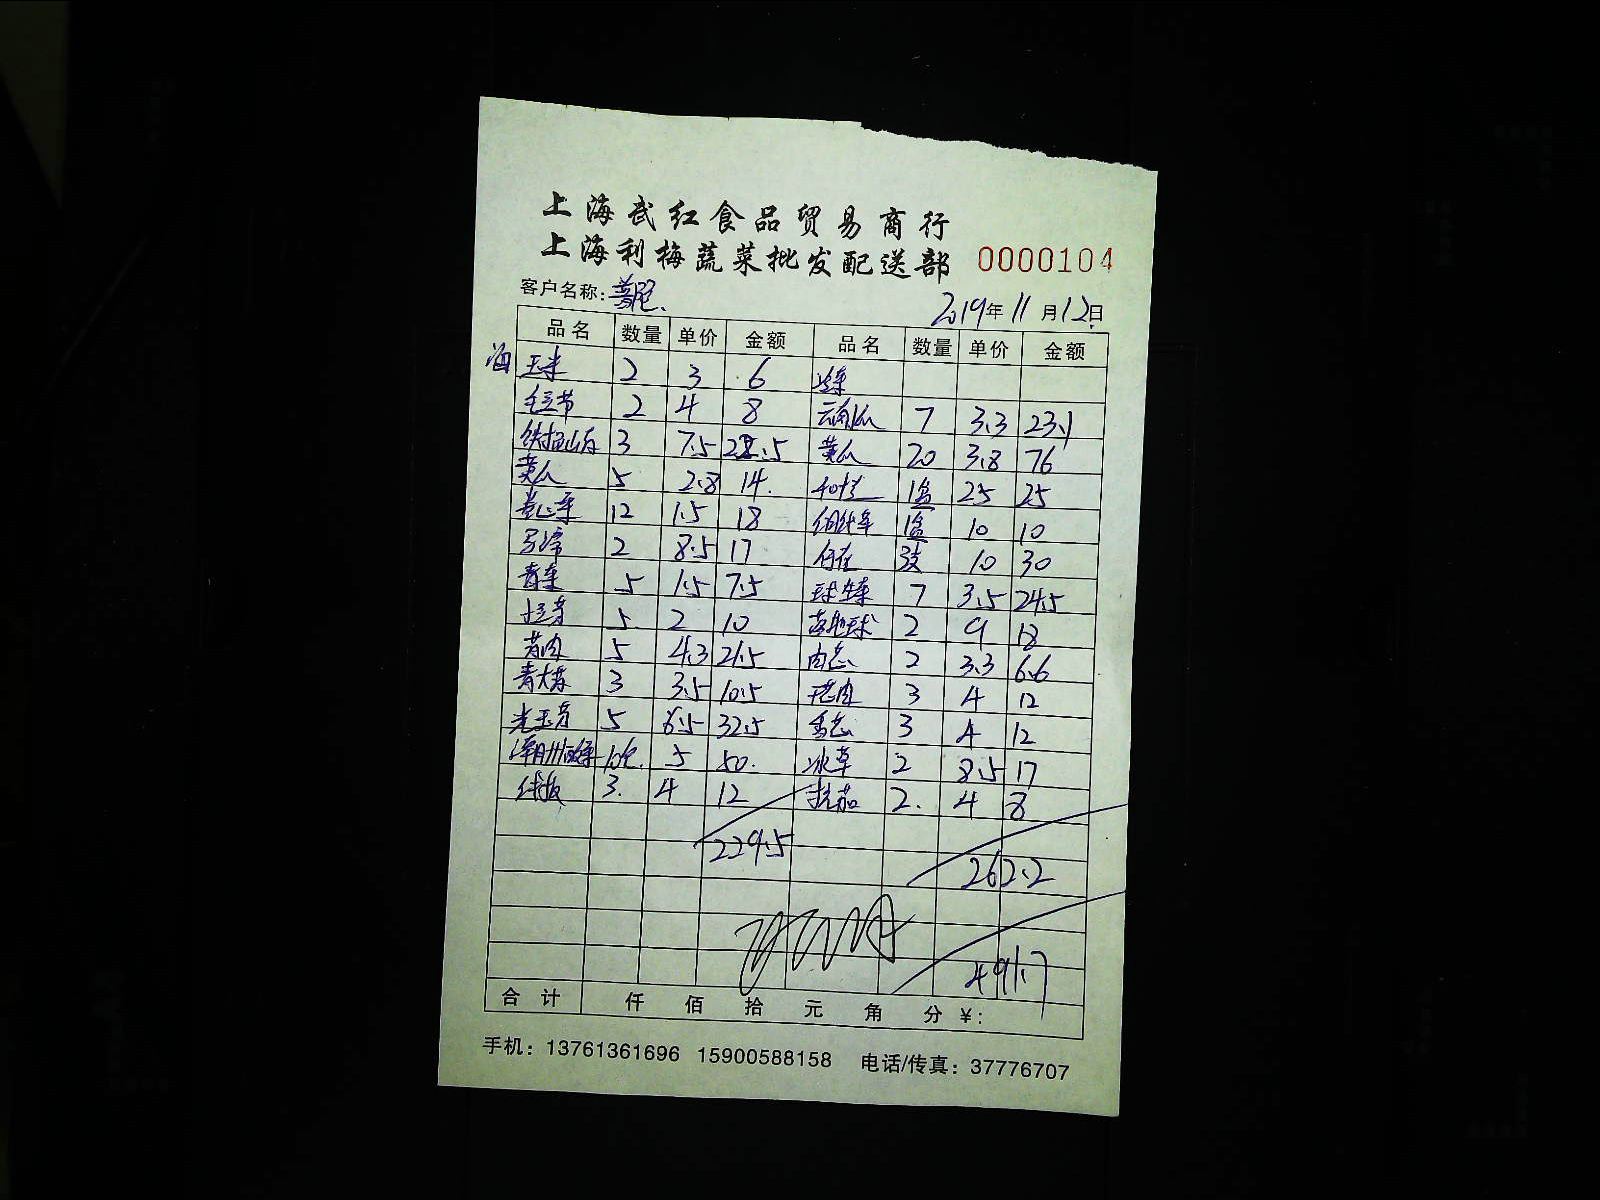 上海武红食品贸易商行
上海利梅蔬菜批发配送部 0000104
客户名称: 2019年11月12日
品名 数量 单价 金额 品名 数量 单价 金额
玉米 2 3 6
毛豆节 2 4 8 7 3.3 23.1
铁棍山药 3 7.5 22.5 黄瓜 20 3.8 76
黄瓜 5 2.8 14. 1盒 25 25
12 1.5 18 1盒 10 10
2 8.5 17 10 30
青菜 5 1.5 7.5 球生菜 7 3.5 24.5
土豆 5 2 10 2 9 18
5 4.3 21.5 肉葱 2 3.3 6.6
青大 3 3.5 10.5 3 4 12
光玉 5 6.5 32.5 香葱 3 4 12
10包. 5 50. 冰草 2 8.5 17
线椒 3. 4 12 茄 2. 4 8
229.5
262.2
491.7
合计 仟 佰 拾 元 角 分 ¥:
手机: 13761361696 15900588158 电话/传真: 37776707